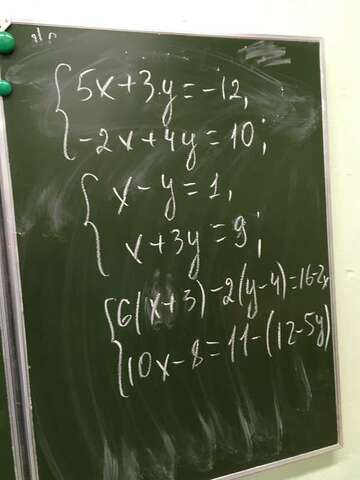 5x+3y=-12,
-2x+4y=10;
x-y=1,
x+3y=9;
6(x+3)-2(y-4)=16-2x
10x-8=11-(12-5y)